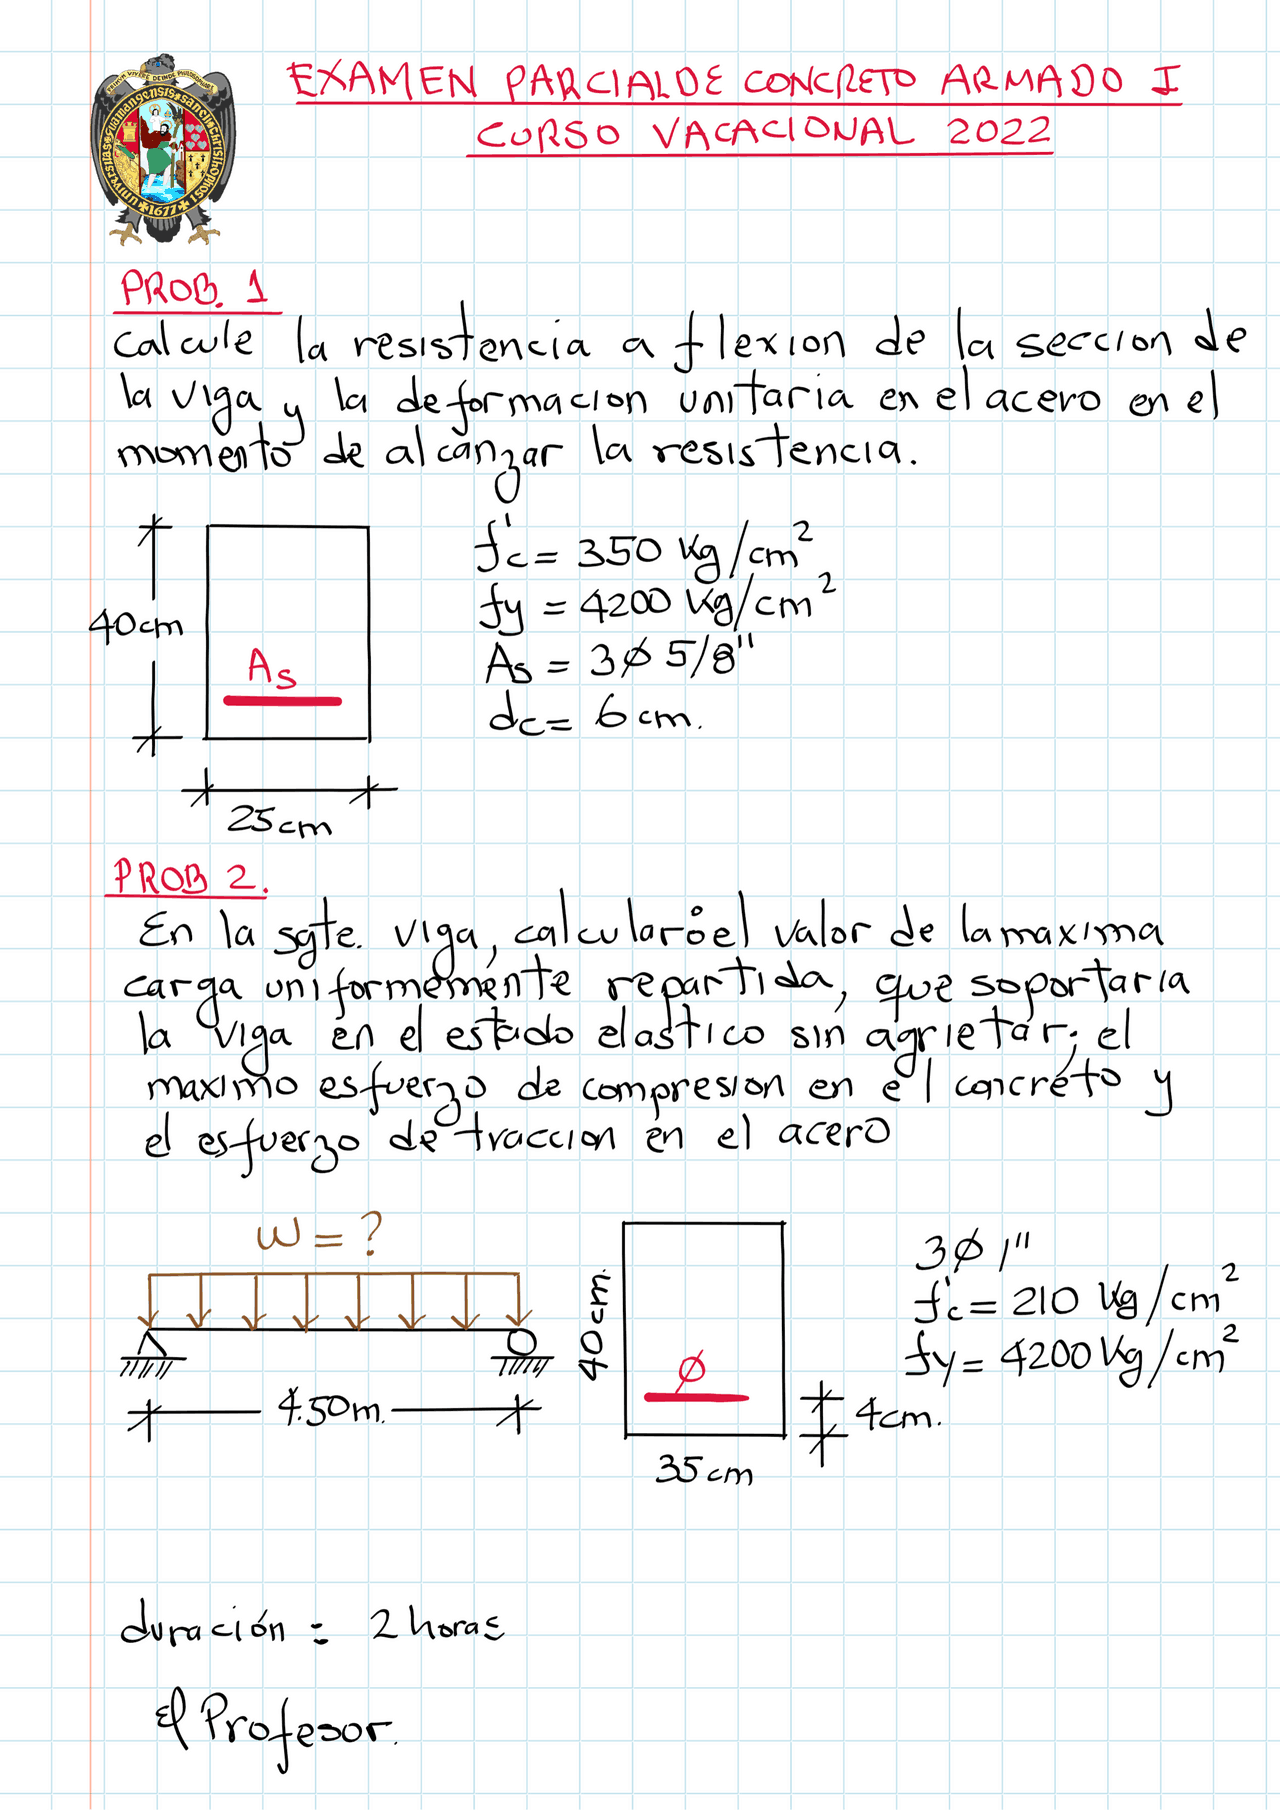 EXAMEN PARCIAL DE CONCRETO ARMADO I
CURSO VACACIONAL 2022
1677
PROB. 1
Calcule la resistencia a flexion de la seccion de
la viga y la deformacion unitaria en el acero en el
momento de alcanzar la resistencia.
40cm
As
25cm
f'c = 350 Kg/cm²
fy = 4200 Kg/cm²
As = 3Ø 5/8"
dc = 6 cm.
PROB 2.
En la sgte. viga, calcular: el valor de la maxima
carga uniformemente repartida, que soportaria
la viga en el estado elastico sin agrietar; el
maximo esfuerzo de compresion en el concreto y
el esfuerzo de traccion en el acero
W = ?
4.50m.
40cm.
Ø
35cm
4cm.
3Ø 1"
f'c = 210 Kg/cm²
fy = 4200 Kg/cm²
duración = 2 horas
El Profesor.